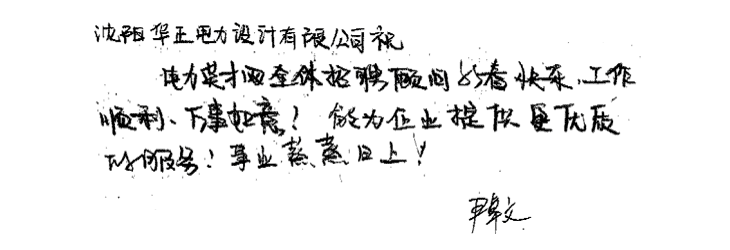 沈阳华正电力设计有限公司祝
电力英才网全体招聘顾问新春快乐、工作
顺利、万事如意！能为企业提供更优质
的服务！事业蒸蒸日上！